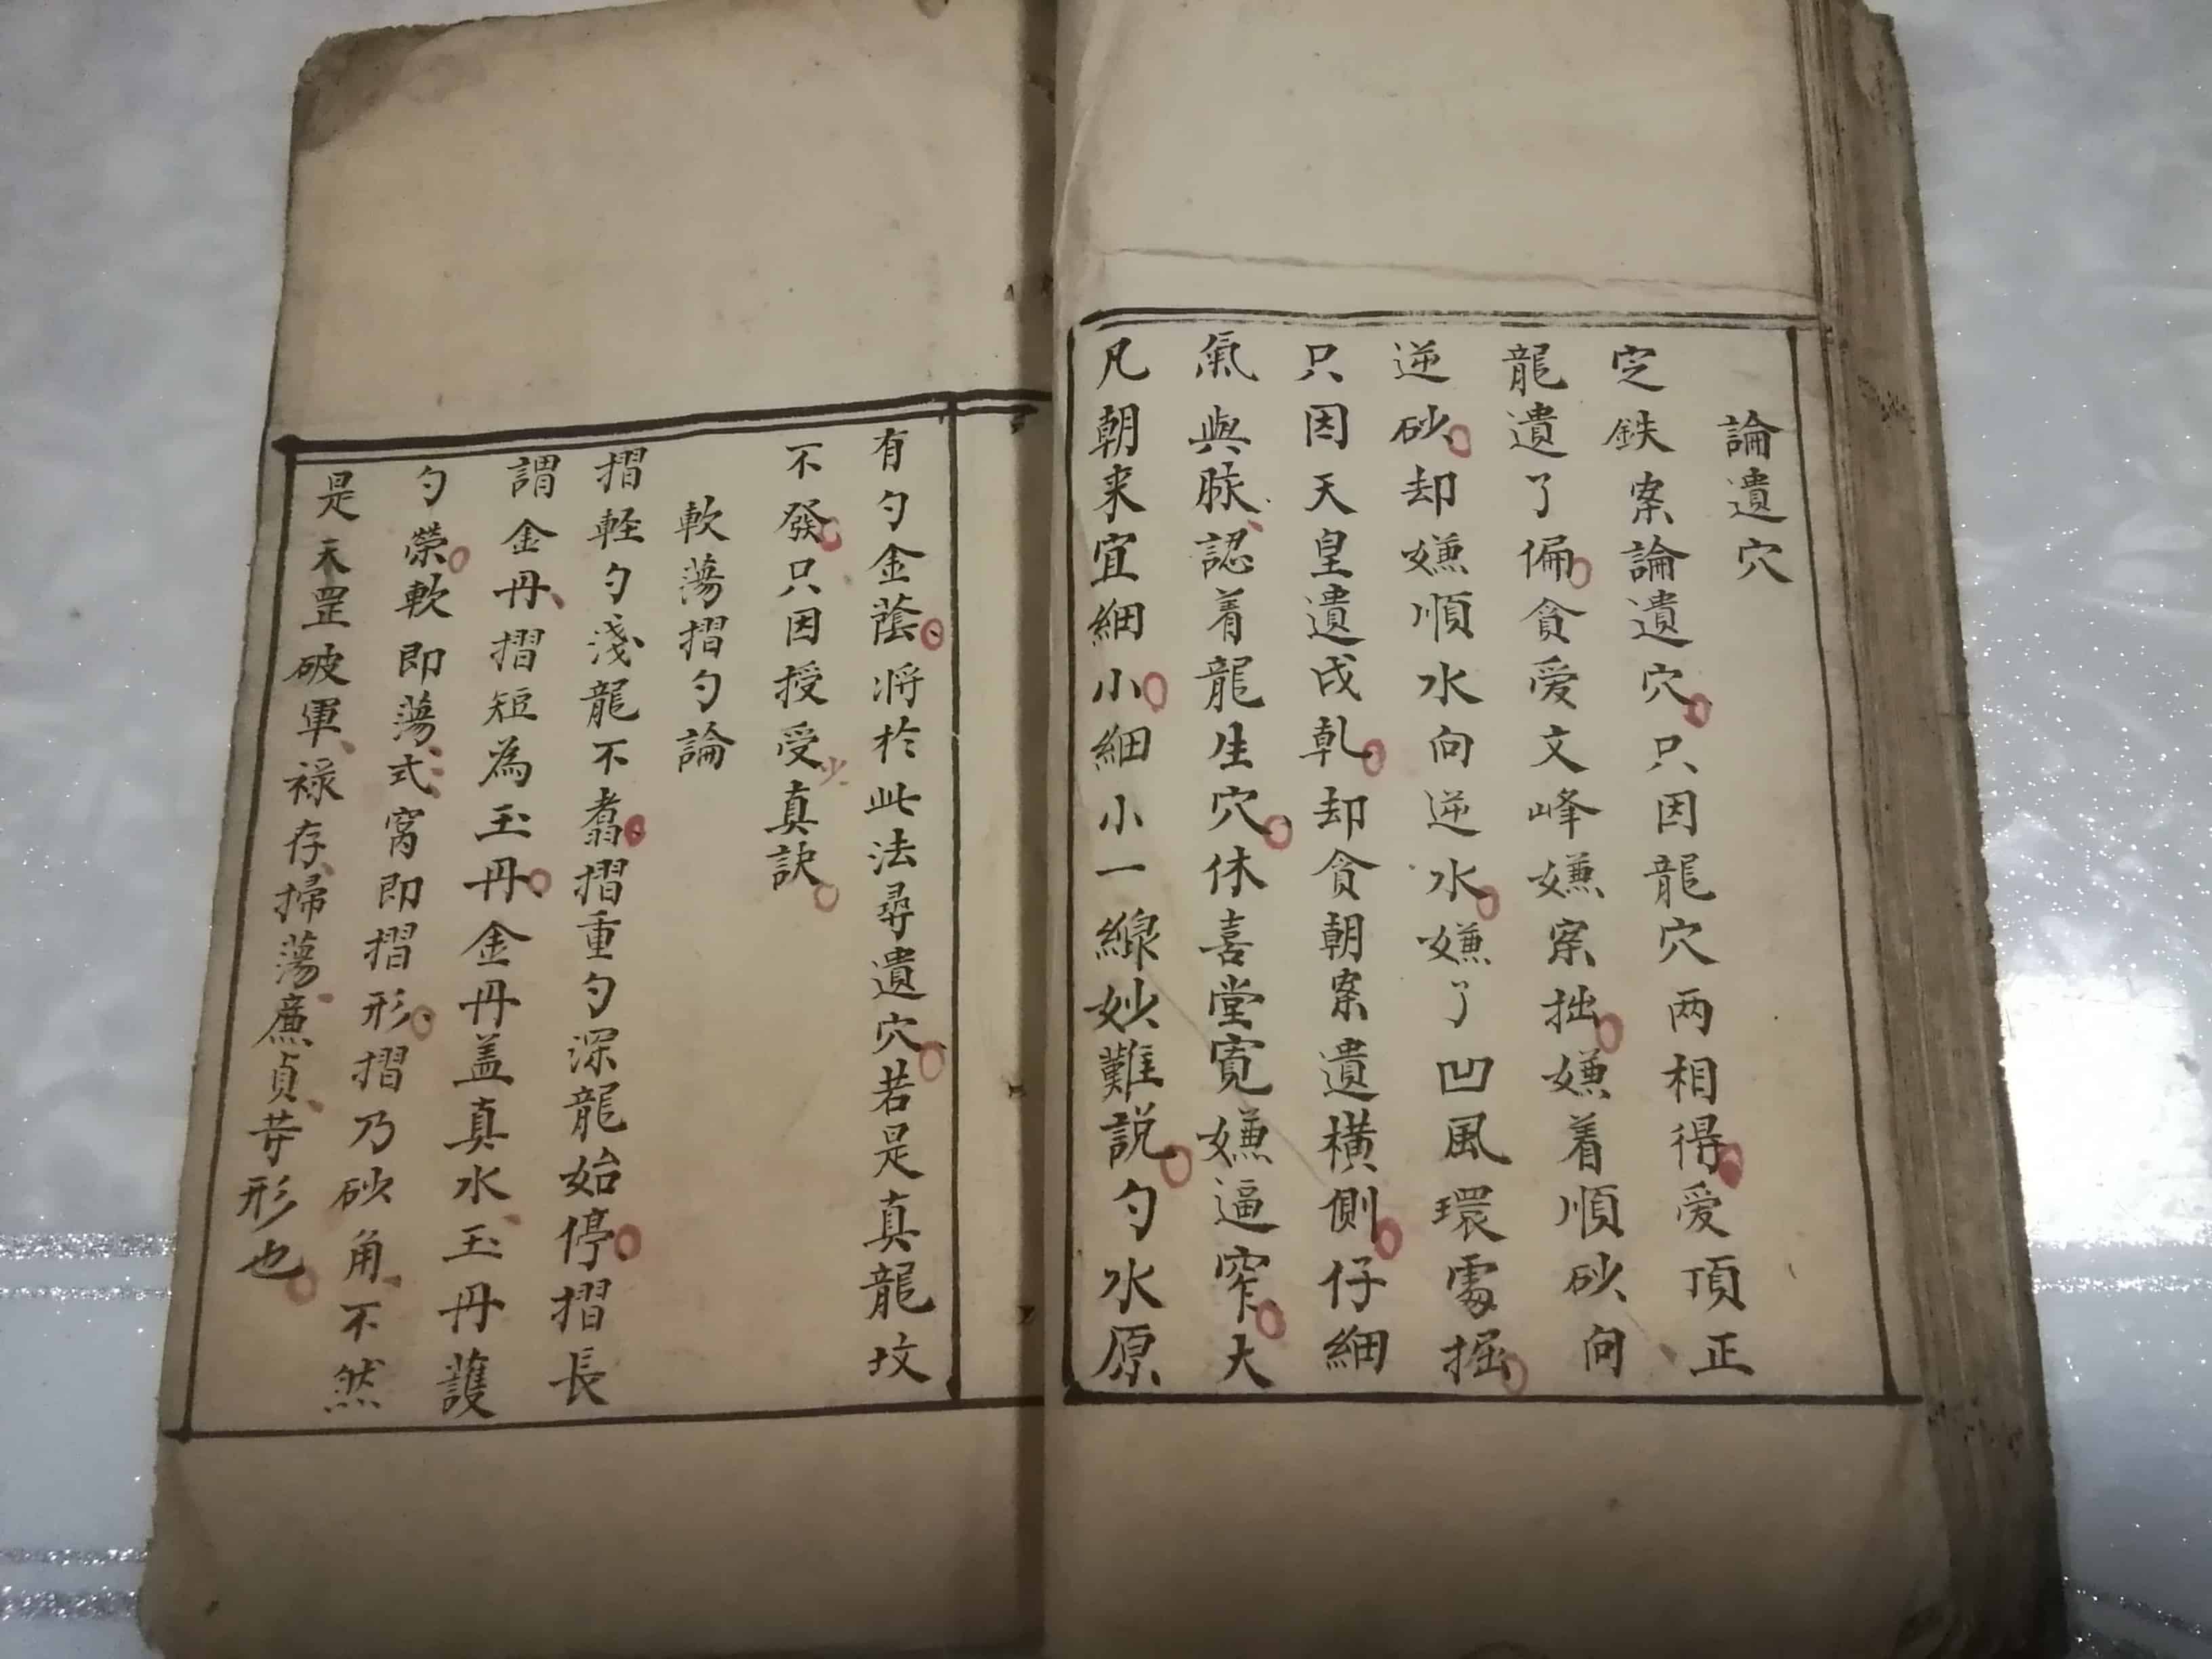 論遺穴
定鉄案論遺穴只因龍穴两相得爱頂正
龍遺了偏貪爱文峰嫌案拙嫌着順砂向
逆砂却嫌順水向逆水嫌了凹風環處掘
只因天皇遺戌乹却貪朝案遺横側仔細
氣與脉認着龍生穴休喜堂寬嫌逼窄大
凡朝来宜細小細小一線妙難説勺水原
有勺金蔭将於此法尋遺穴若是真龍坟
不發只因授受少真訣
軟蕩摺勺論
摺軽勺淺龍不翥摺重勺深龍始停摺長
謂金丹摺短為玉丹金丹盖真水玉丹護
勺榮軟即蕩式窩即摺形摺乃砂角不然
是天罡破軍禄存掃蕩廉貞芽形也